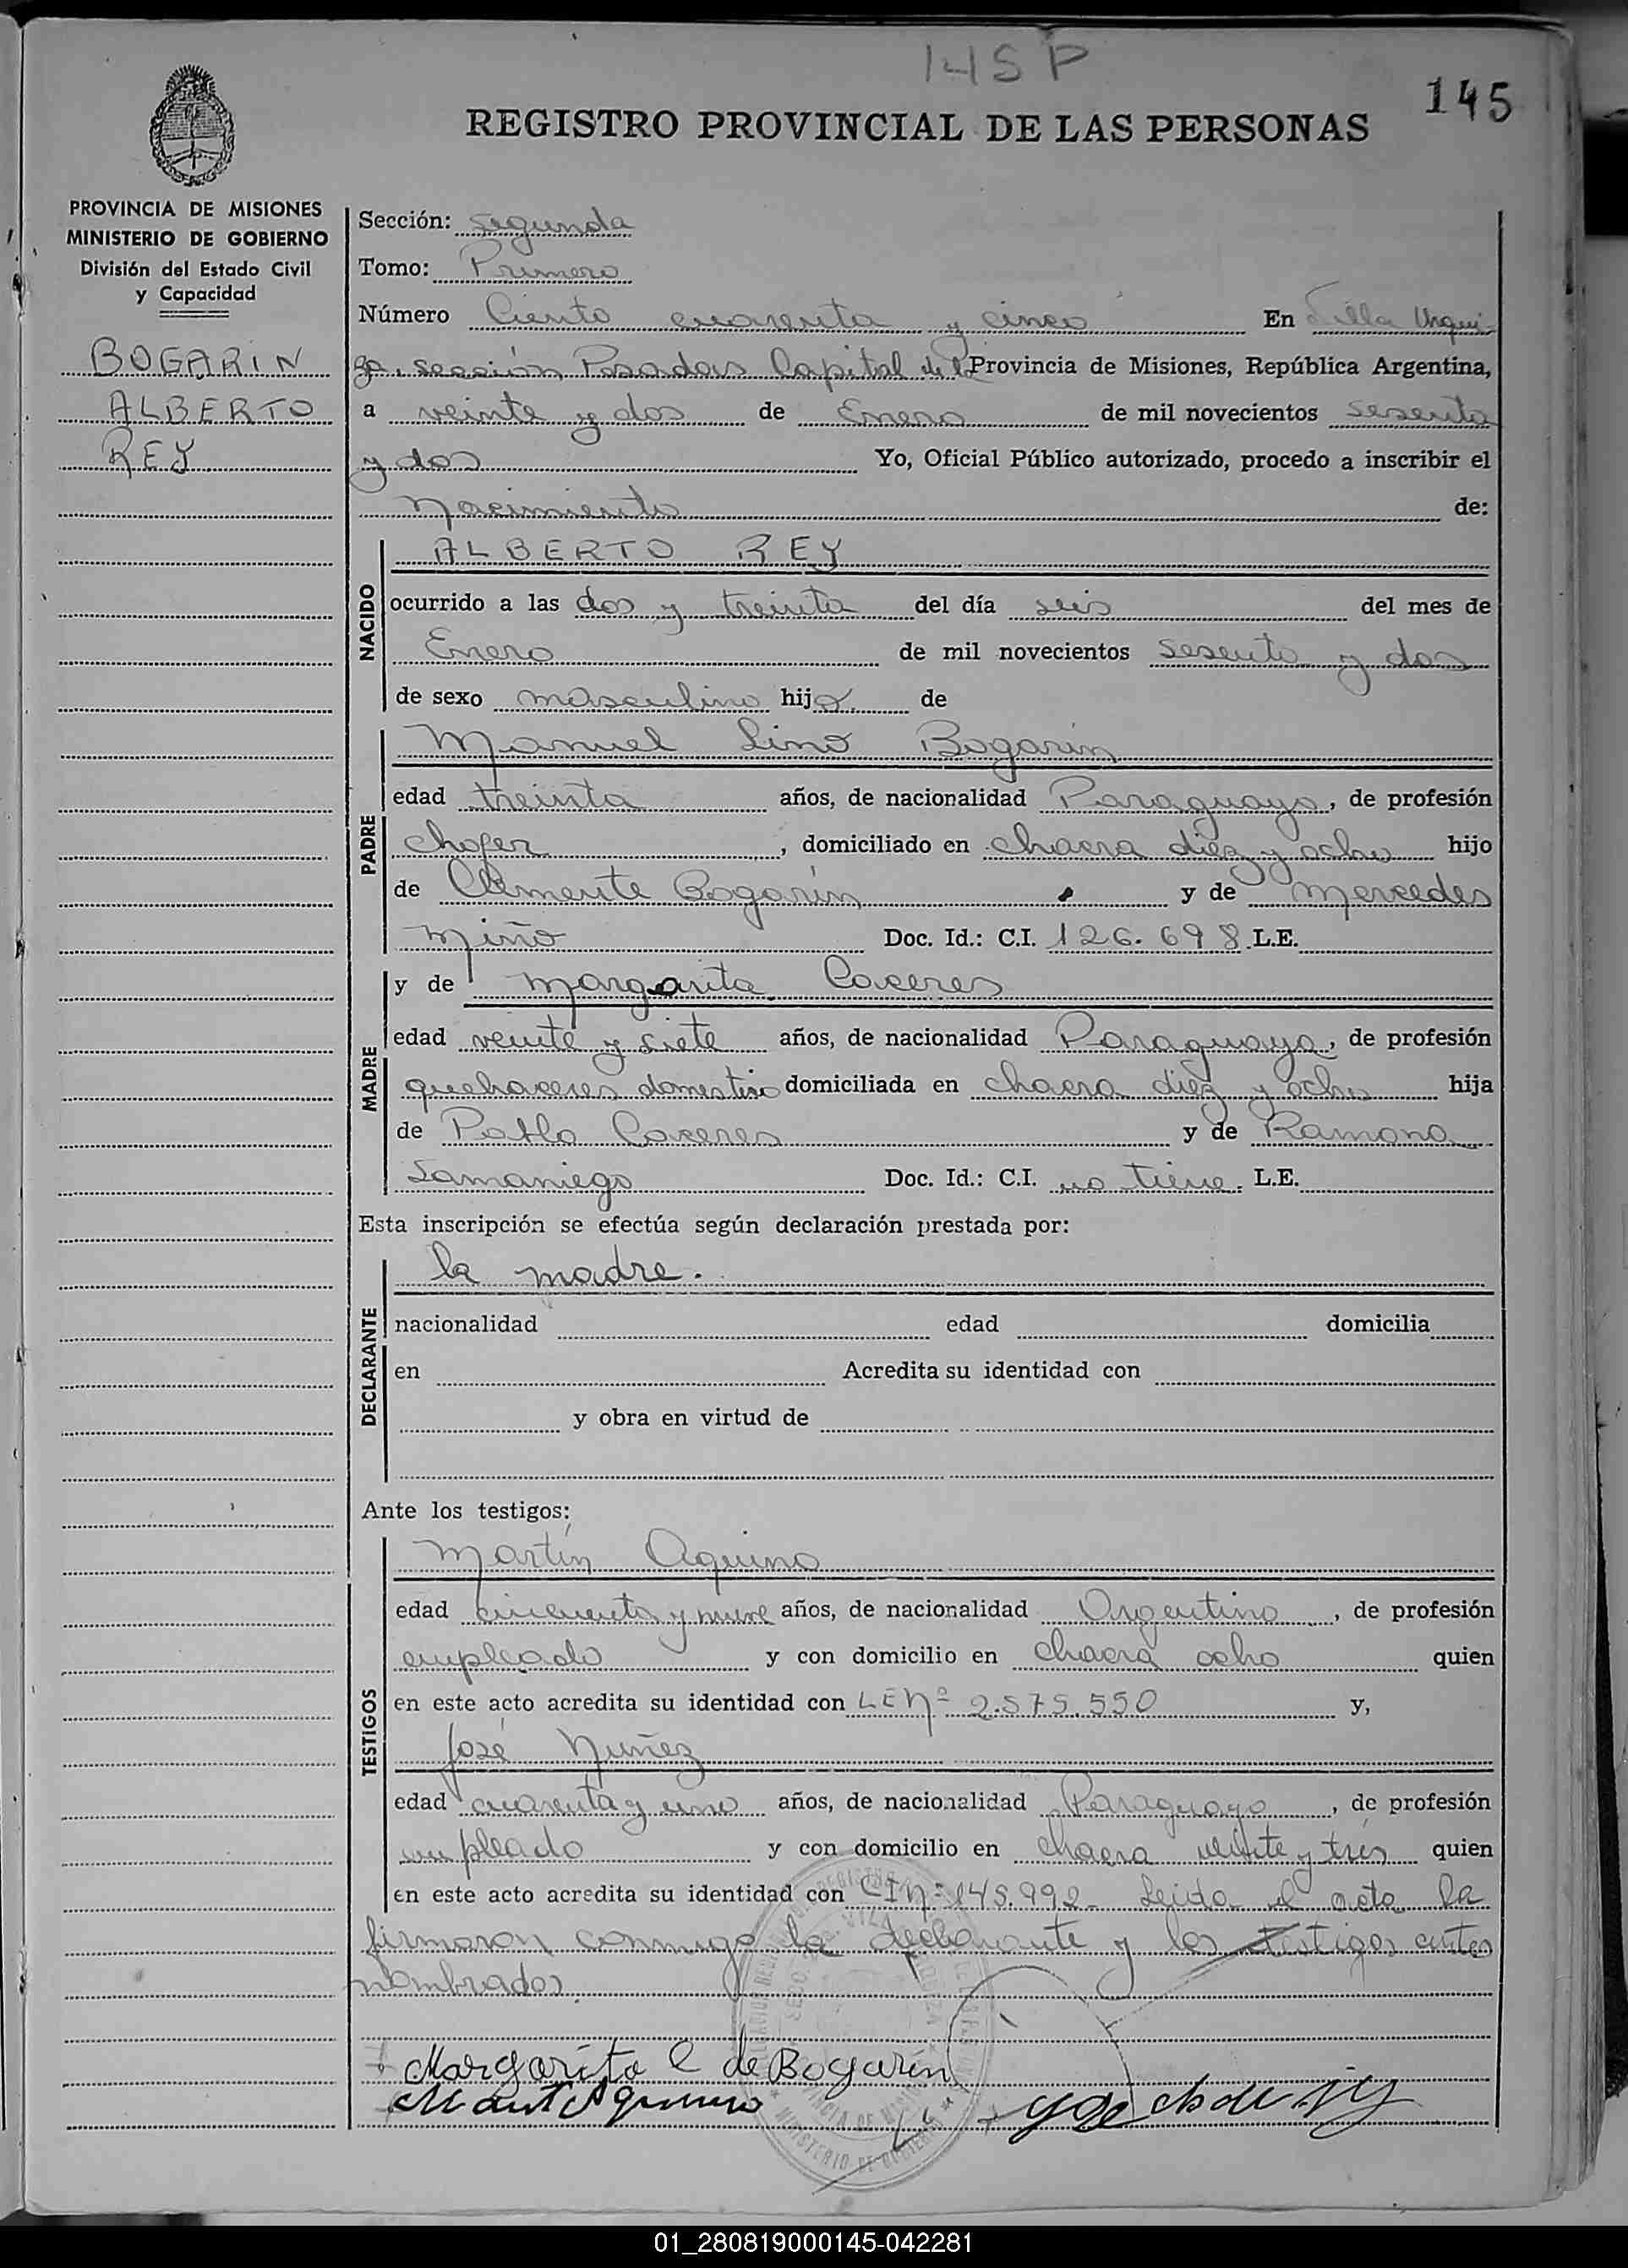 145 P
145
REGISTRO PROVINCIAL DE LAS PERSONAS
PROVINCIA DE MISIONES
MINISTERIO DE GOBIERNO
División del Estado Civil
y Capacidad
BOGARIN
ALBERTO
REY
Sección: segunda
Tomo: Primero
Número Ciento cuarenta y cinco En Villa Urqui
za, sección Posadas Capital de la Provincia de Misiones, República Argentina,
a veinte y dos de Enero de mil novecientos sesenta
y dos Yo, Oficial Público autorizado, procedo a inscribir el
Nacimiento de:
NACIDO
ALBERTO REY
ocurrido a las dos y treinta del día seis del mes de
Enero de mil novecientos sesenta y dos
de sexo masculino hijo de
PADRE
Manuel Lino Bogarin
edad treinta años, de nacionalidad Paraguayo, de profesión
chofer, domiciliado en chacra diez y ocho hijo
de Clemente Bogarín y de Mercedes
Miño Doc. Id.: C.I. 126.698 L.E.
MADRE
y de Margarita Caceres
edad veinte y siete años, de nacionalidad Paraguaya, de profesión
quehaceres domestico domiciliada en chacra diez y ocho hija
de Pablo Caceres y de Ramona
Samaniego Doc. Id.: C.I. no tiene. L.E.
Esta inscripción se efectúa según declaración prestada por:
DECLARANTE
la madre.
nacionalidad edad domicilia
en Acredita su identidad con
y obra en virtud de
Ante los testigos:
TESTIGOS
Martín Aquino
edad cincuenta y nueve años, de nacionalidad Argentino, de profesión
empleado y con domicilio en chacra ocho quien
en este acto acredita su identidad con LE Nº 2.575.550 y,
José Nuñez
edad cuarenta y uno años, de nacionalidad Paraguayo, de profesión
empleado y con domicilio en chacra veinte y tres quien
en este acto acredita su identidad con CI Nº 145.992- Leida el acta la
firmaron conmigo la declarante y los testigos antes
nombrados.
Margarita C de Bogarín
01_280819000145-042281